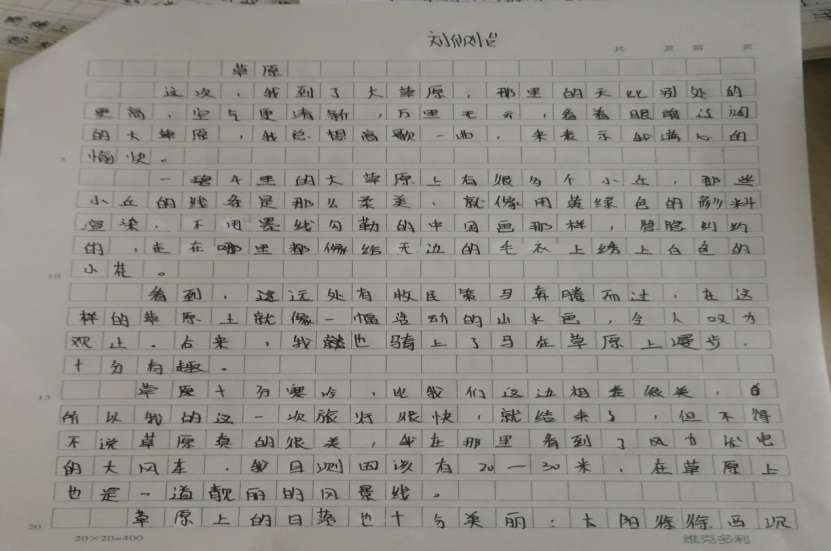 共 页 第 页
草原
这次，我到了大草原，那里的天比别处的
更高，空气更清新，万里无云，看着眼前辽阔
的大草原，我总想高歌一曲，来表示我满心的
5 愉快。
一碧千里的大草原上有很多个小丘，那些
小丘的线条是那么柔美，就像用黄绿色的颜料
渲染，不用墨线勾勒的中国画那样，隐隐约约
的，走在哪里都像给无边的毛衣上绣上白色的
10 小花。
看到，远处有牧民策马奔腾而过，在这
样的草原上就像一幅流动的山水色，令人叹为
观止。后来，我也骑上了马在草原上漫步，
十分有趣。
15 草原十分寒冷，比我们这边相差很美，
所以我的这一次旅行很快，就结束了，但不得
不说草原真的很美，我在那里看到了风力发电
的大风车，我目测四该有20一30米，在草原上
也是一道靓丽的风景线。
20 草原上的日落也十分美丽：太阳徐徐西沉
20×20=400 维克多利